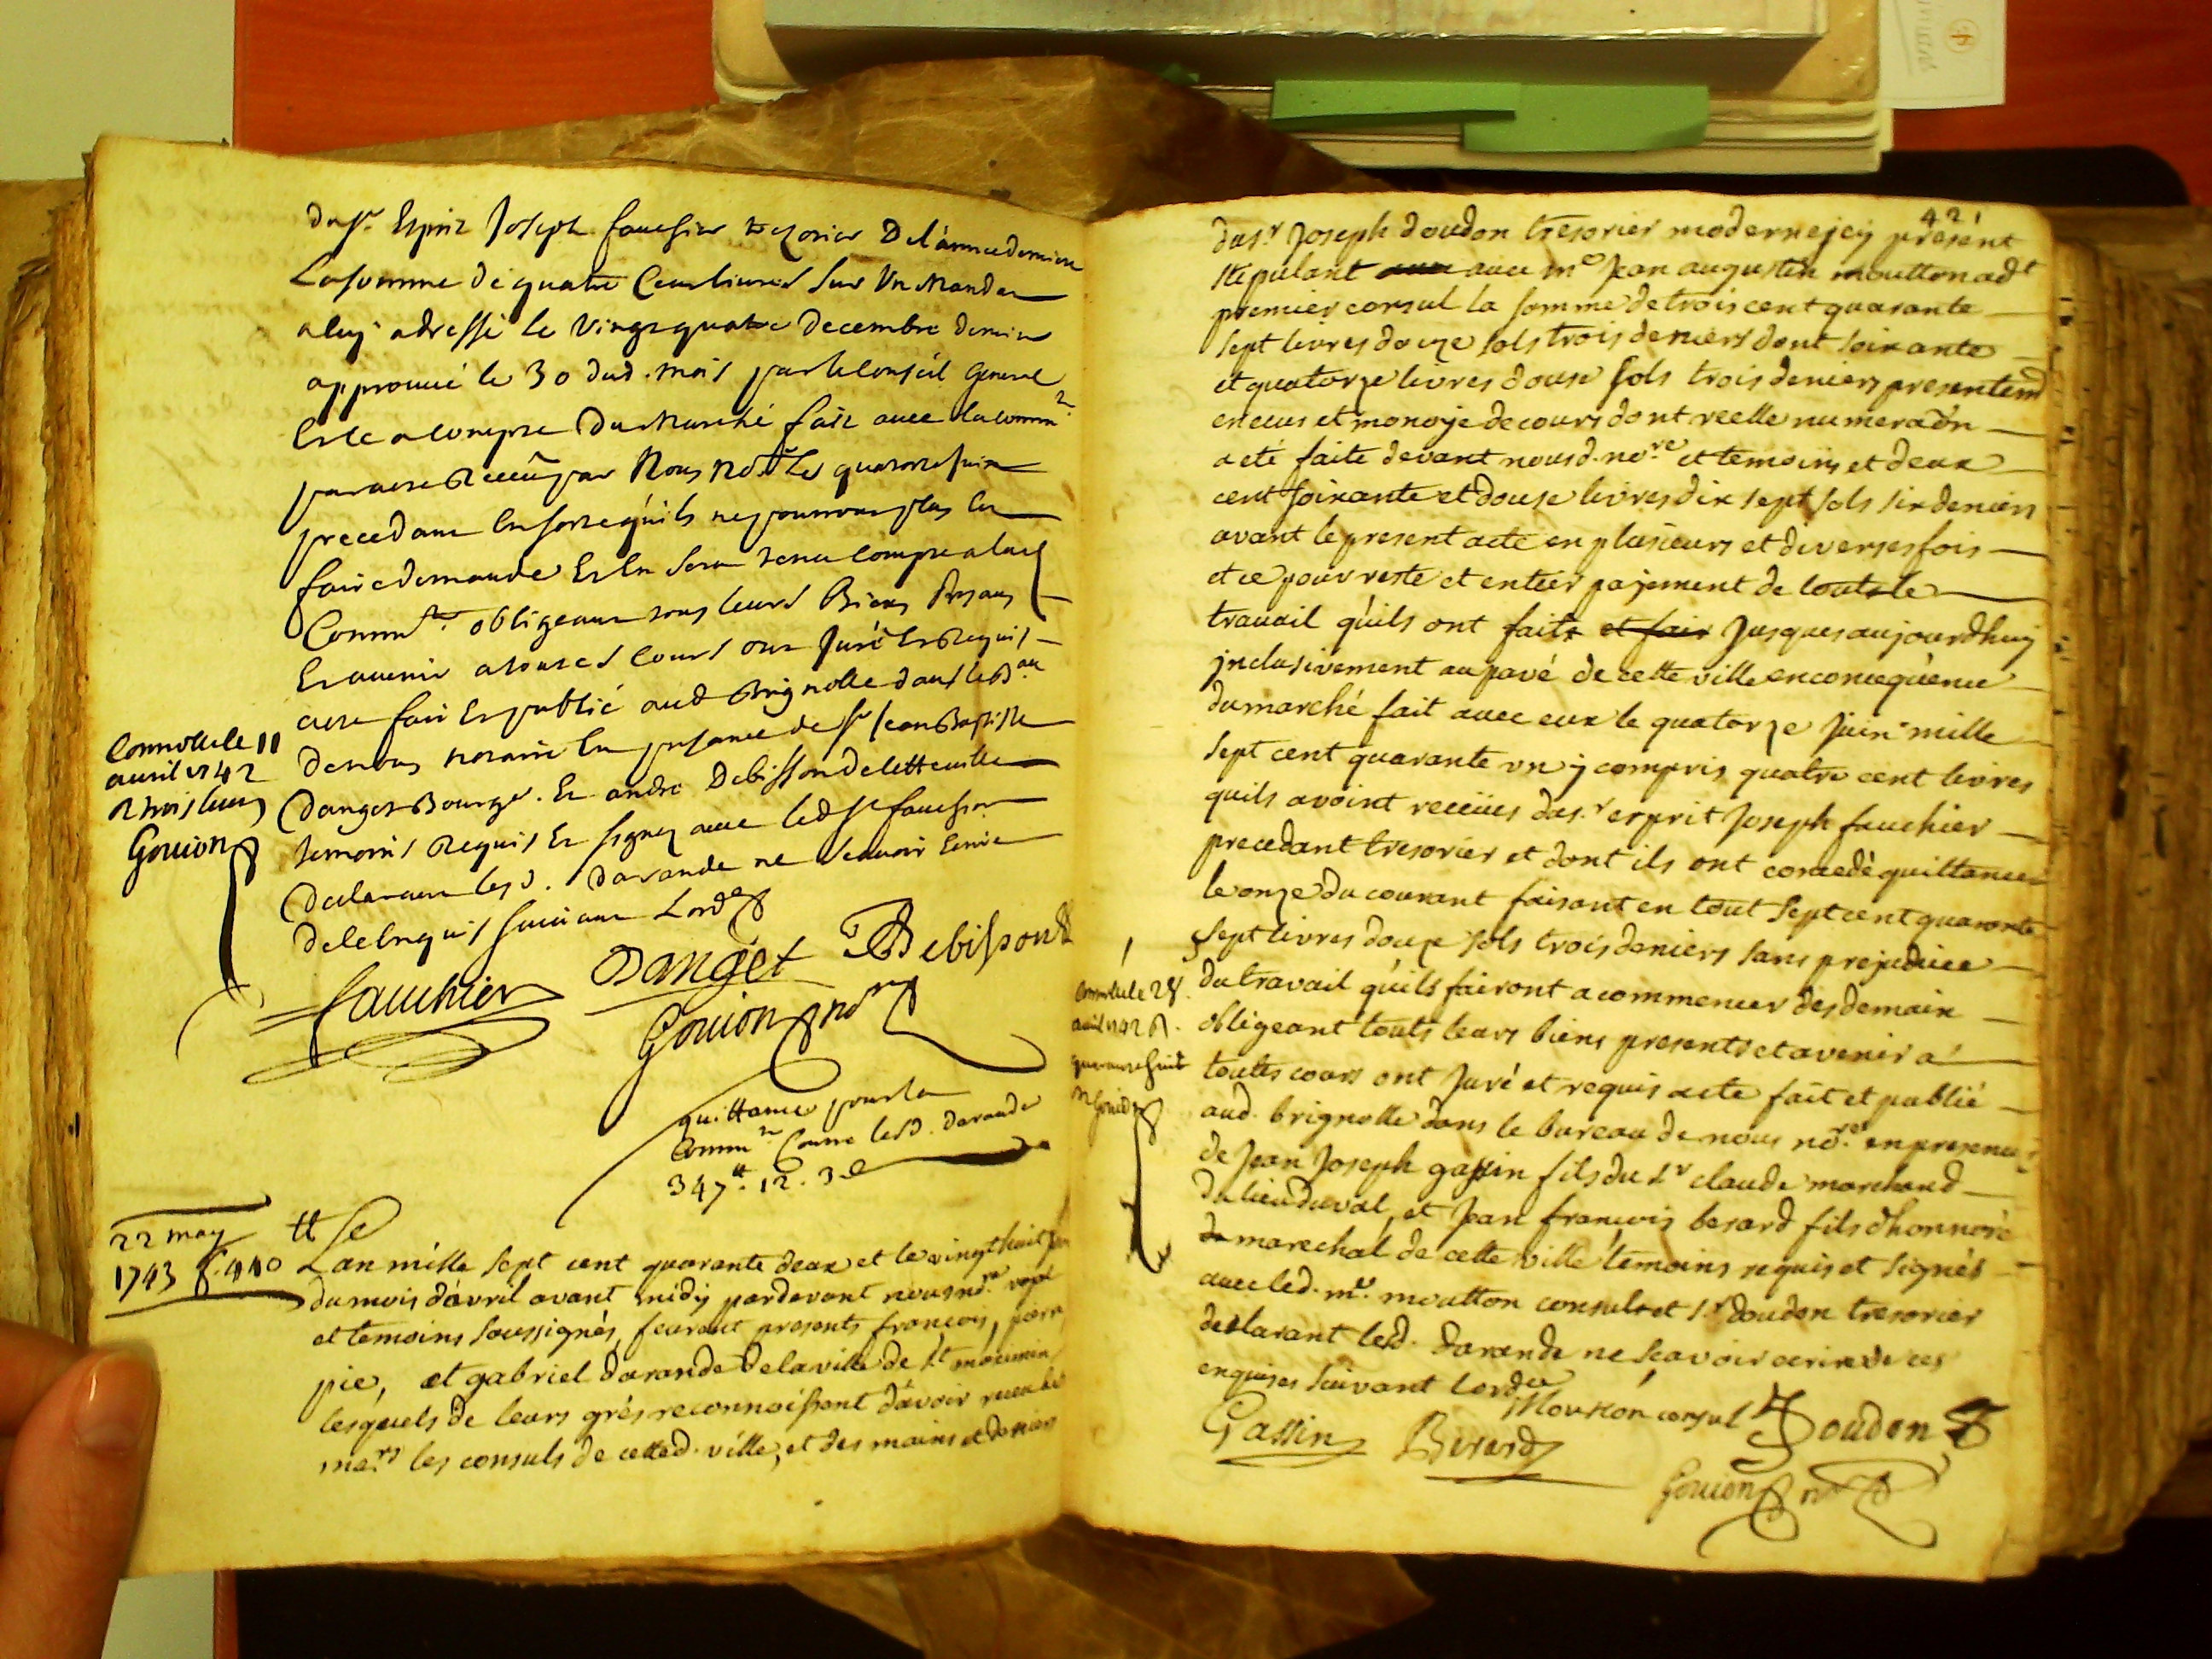 du sr. Esprit Joseph fauchier trezorier De l'annee derniere
La somme de quatre Cens livres sur Un Mandat
a luy adressé le Vingt quatre decembre dernier
approuvé le 30 dud. mois par le Conseil General
Et le a Compte Du Marché fait avec la comm.té
par acte Receu par Nous No.re Le quatorze juin
precedant En sorte qu'ils ne pourront plus En
faire demande Et En sera tenu Compte a lad.
Commu.té obligeant tous leurs Biens Presans
Et avenir a toutes Cours ont Juré Et Requis
acte fait Et publié aud Brignolle dans le B.au
de nous notaire En presance de sr Jean Baptiste
Danget Bourge. Et andré Debisson
temoins Requis Et signez avec led sr fauchier
Declarant lesd. darande ne scavoir Ecrire
de ce Enquis suivant Lord.e
Controlle le 11
avril 1742
R trois livres
Gouion
fauchier Danget Debisson
Gouion no.re
quittance pour la
Commu.té Contre lesd. darande
347tt. 12. 3 d
22 may
1743 f. 440
L'an mille sept cent quarante deux et le vingt huit
du mois d'avril avant midy pardevant nous no.re royal
et temoins soussignés, feurent presents francois, pierre
pie, et gabriel darande de la ville de St maximin
lesquels de leurs grés reconnoissent d'avoir receu de
me.rs les consuls de cetted. ville, et des mains et deniers
421
du s.r Joseph doudon tresorier moderne jcy present
stepulant avec m.e Jean augustin moutton ad.t
premier consul la somme de trois cent quarante
sept livres douze sols trois deniers dont soixante
et quatorze livres douse sols trois deniers presentem.t
en ecus et monoye de cours dont reelle numeraõn
a eté faite devant nous d. no.re et temoins et deux
cent soixante et douse livres dix sept sols six deniers
avant le present acte en plusieurs et diverses fois
et ce pour reste et entier pajement de tout le
travail qu'ils ont faits et fair Jusques aujourdhuy
jnclusivement au pavé de cette ville en consequence
du marché fait avec eux le quatorze Juin mille
sept cent quarante un y compris quatre cent livres
quils avoint receües du s.r esprit Joseph fauchier
precedant tresorier et dont ils ont concedé quittance
le onze du courant faisant en tout sept cent quarante
sept livres douze sols trois deniers sans prejudice
du travail qu'ils fairont a commencer des demain
obligeant touts leurs biens presents et avenir a
toutes cours ont Juré et requis acte fait et publié
aud. brignolle dans le bureau de nous no.re en presence
de Jean Joseph gassin fils du s.r claude marchand
du lieu du val, et Jean francois berard fils dhonnoré
marechal de cette ville temoins requis et signés
avec led. m.e moutton consul et s.r doudon tresorier
declarant lesd. darande ne scavoir ecrire de ce
enquises suivant lord.ce
Controlle le 28
avril 1742 R.
quarante huit
Gouion
Moutton consul Doudon
Gassin Berard
Gouion no.re